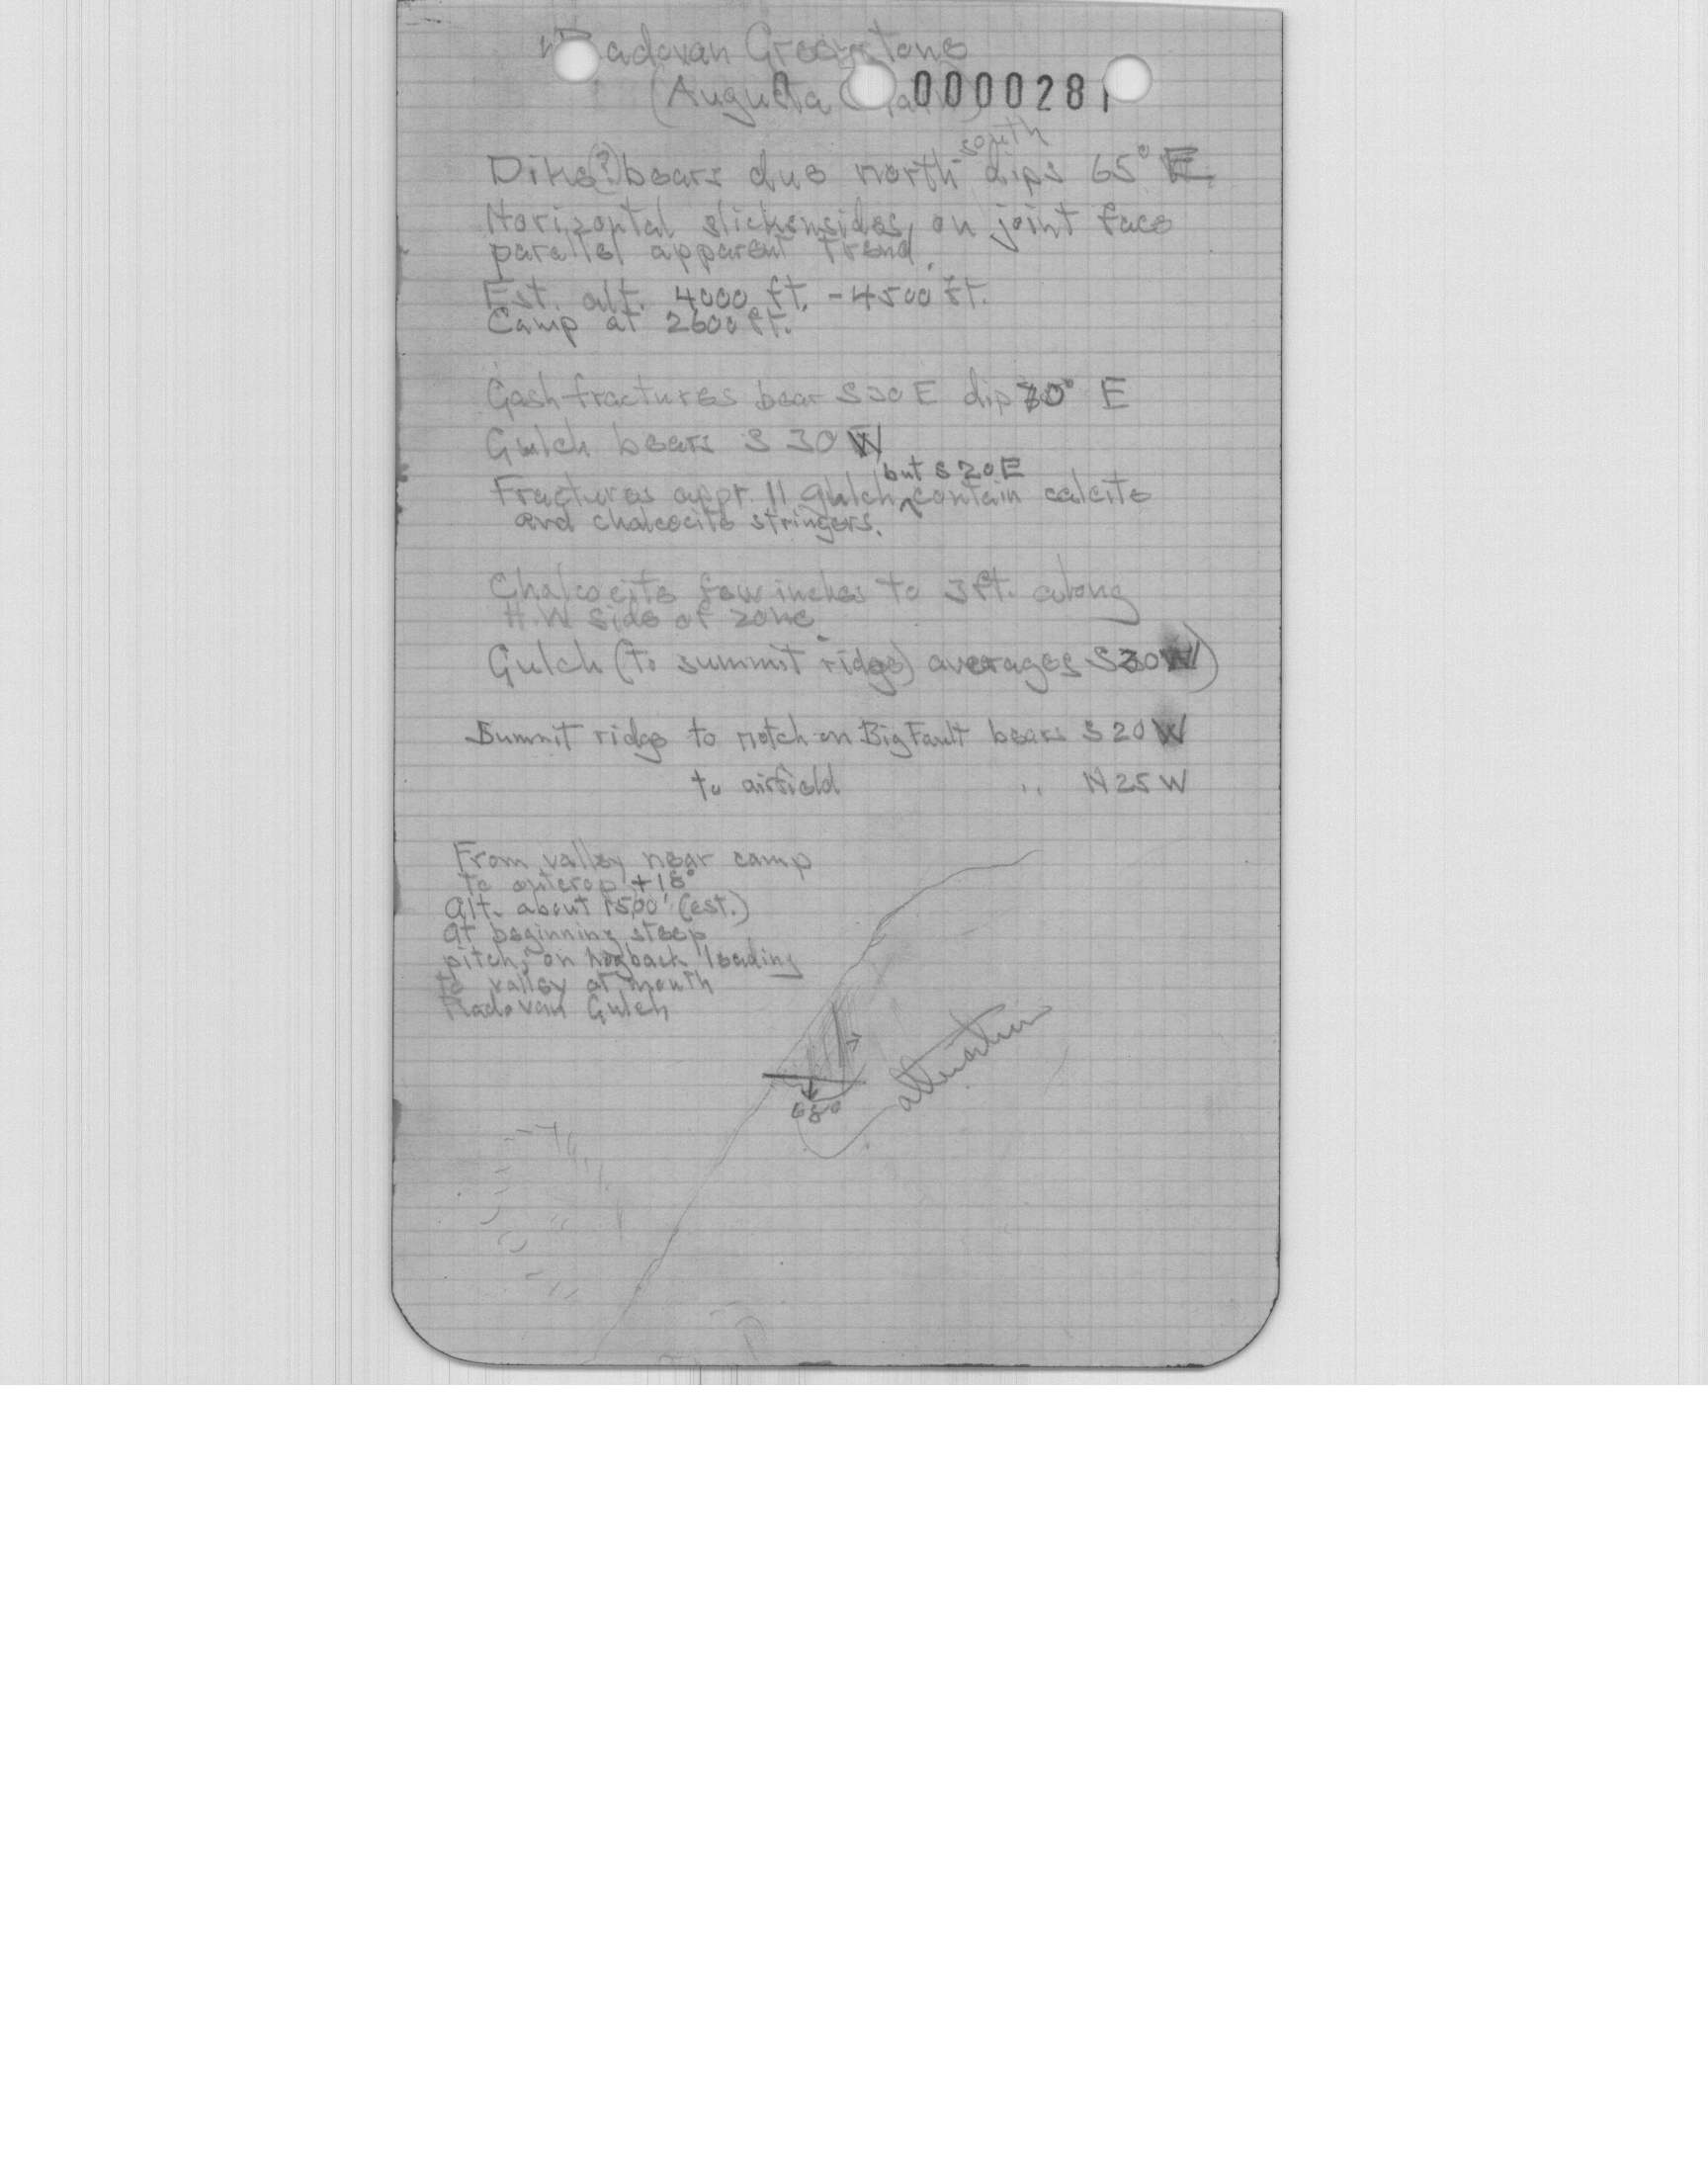 Radovan Greenstone
(Augusta Claim) 000028
Dike(?) bears due north-south dips 65° E.
Horizontal slickensides on joint face
parallel apparent trend.
Est. alt. 4000 ft. - 4500 ft.
Camp at 2600 ft.
Gash fractures bear S30E dip 70° E
Gulch bears S 30 W
but S 20 E
Fractures appr. || gulch ^ contain calcite
and chalcocite stringers.
Chalcocite few inches to 3 ft. along
H.W side of zone.
Gulch (to summit ridge) averages S30W)
Summit ridge to notch on Big Fault bears S 20 W
to airfield " N 25 W
From valley near camp
to outcrop +18°
Alt. about 1500' (est.)
at beginning steep
pitch, on hogback leading
to valley at mouth
Radovan Gulch
68°